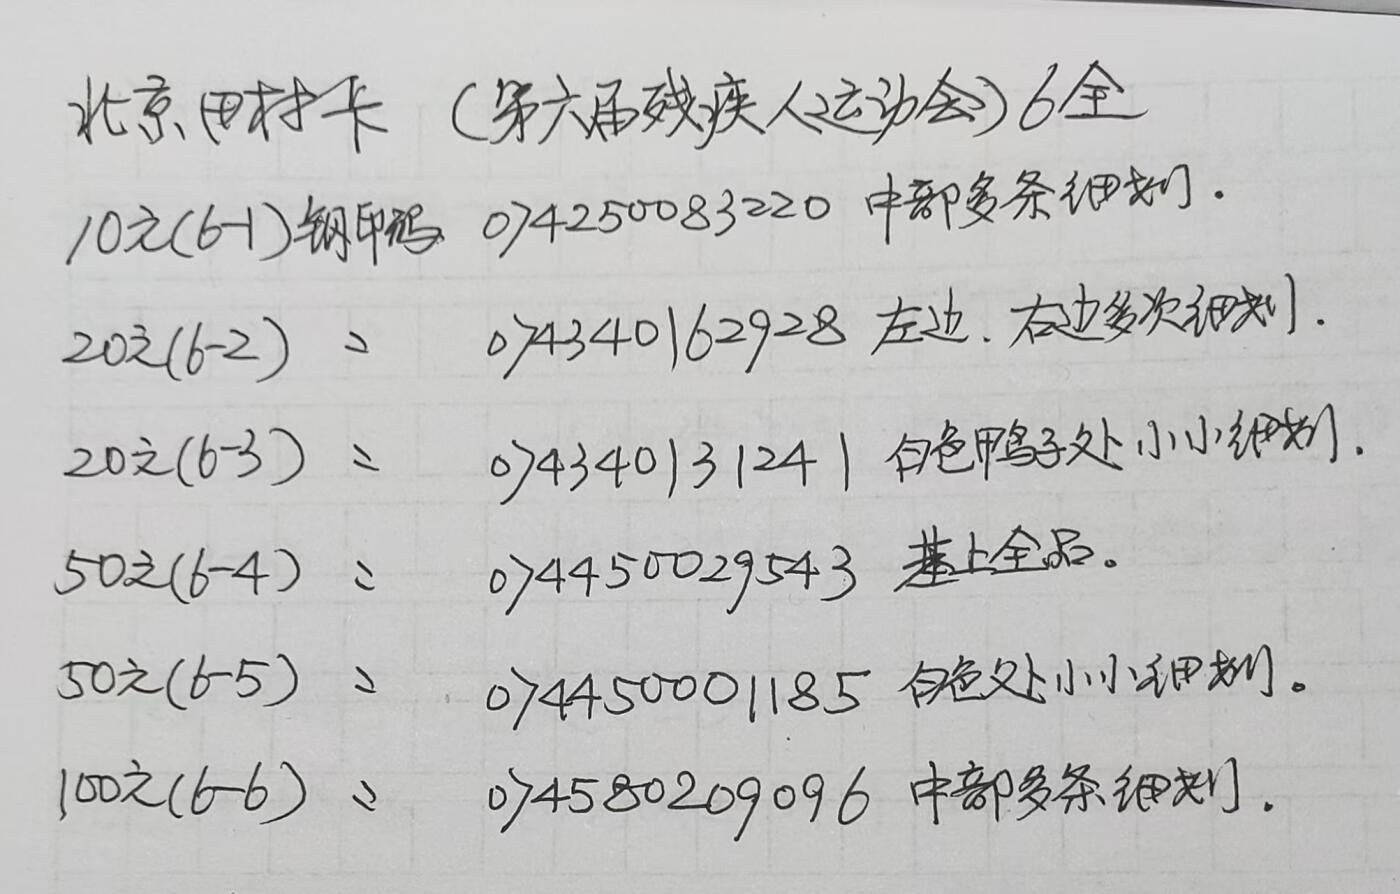 北京田村卡 (第六届残疾人运动会) 6全
10元(6-1)钢印码 074250083220 中部多条细划.
20元(6-2) 〃 074340162928 左边.右边多次细划.
20元(6-3) 〃 074340131241 白色鸭子处小小细划.
50元(6-4) 〃 074450029543 基上全品。
50元(6-5) 〃 074450001185 白色处小小细划。
100元(6-6) 〃 074580209096 中部多条细划.